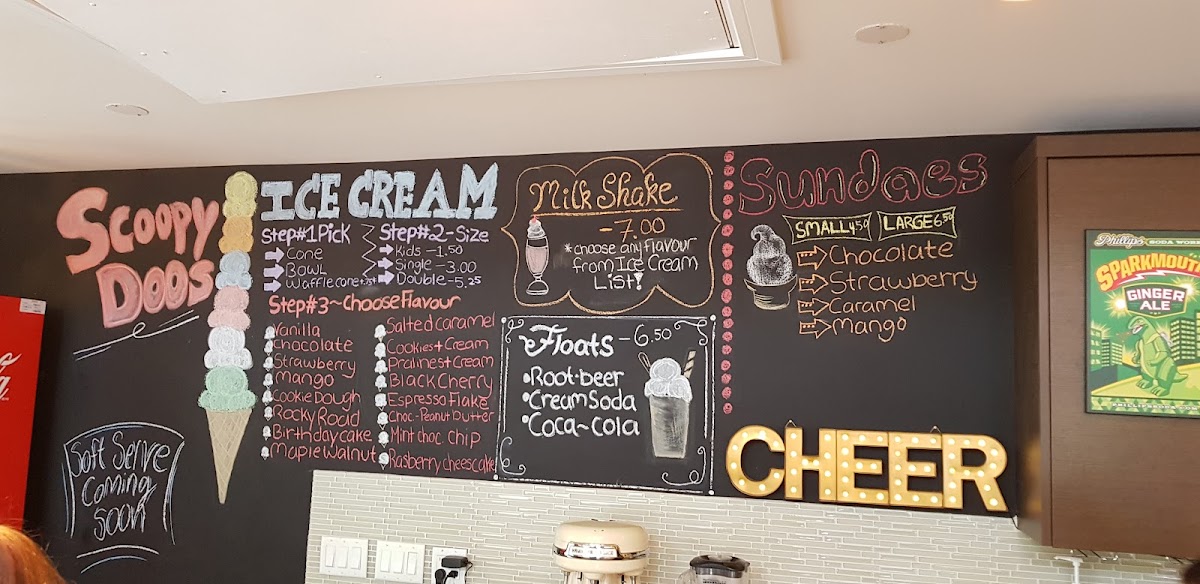 SCOOPY
DOOS
Soft Serve
Coming
SOON
ICE CREAM
Step#1 Pick
Cone
Bowl
Waffle cone +.75¢
Step#2-Size
Kids -1.50
Single -3.00
Double -5.25
Step#3~Choose Flavour
Vanilla
Chocolate
Strawberry
Mango
Cookie Dough
Rocky Road
Birthday cake
Maple walnut
Salted caramel
Cookies + Cream
Pralines + Cream
Black Cherry
Espresso Flake
Choc-Peanut butter
Mint choc chip
Rasberry cheesecake
Milk Shake
-7.00
*choose any Flavour
from Ice Cream
List!
Floats -6.50
•Root-beer
•Cream Soda
•Coca~cola
Sundaes
SMALL 4.50
LARGE 6.50
Chocolate
Strawberry
Caramel
Mango
CHEER
Phillips SODA WORKS
SPARKMOUTH
GINGER
ALE